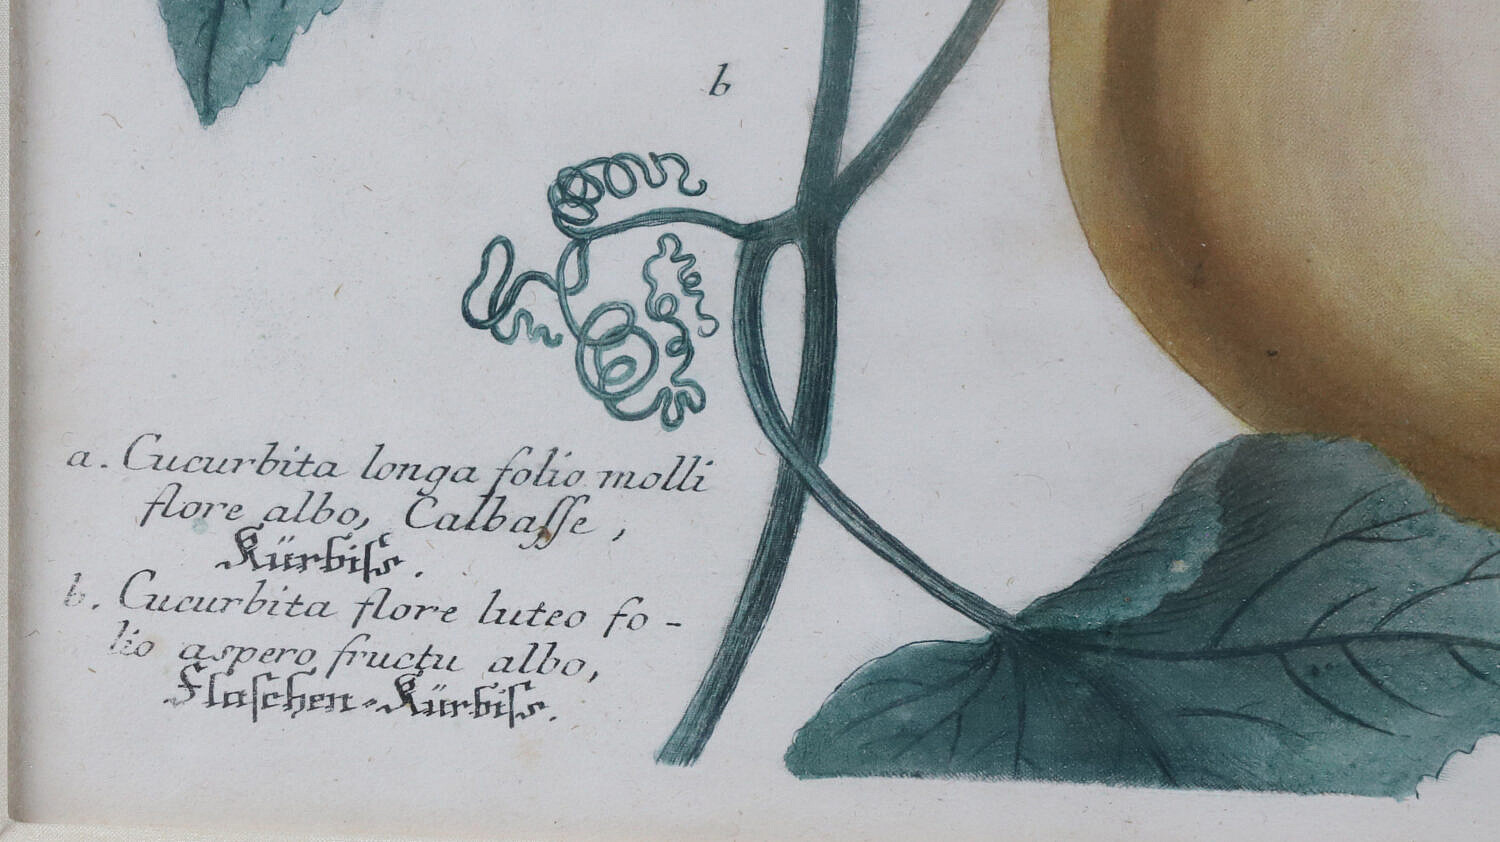 b
a. Cucurbita longa folio molli
flore albo, Calbaſſe,
Kürbiſs.
b. Cucurbita flore luteo fo-
lio aspero fructu albo,
Flaſchen-Kürbiſs.